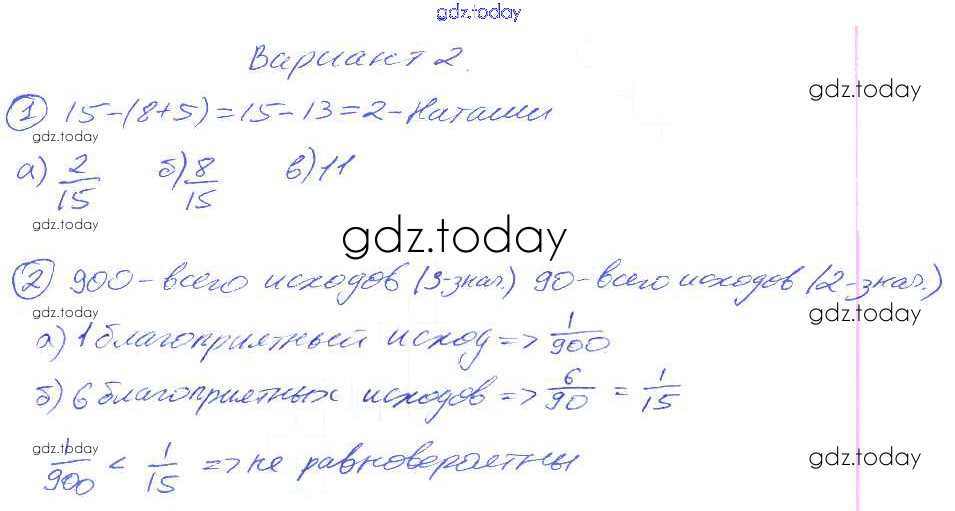 gdz.today
Вариант 2.
gdz.today
① 15-(8+5)=15-13=2-Наташи
gdz.today
а) 2/15 б) 8/15 в) 11
gdz.today
gdz.today
② 900-всего исходов (3-знач.) 90-всего исходов (2-знач.)
gdz.today
gdz.today
а) 1 благоприятный исход => 1/900
б) 6 благоприятных исходов => 6/90 = 1/15
gdz.today
gdz.today
1/900 < 1/15 => не равновероятны